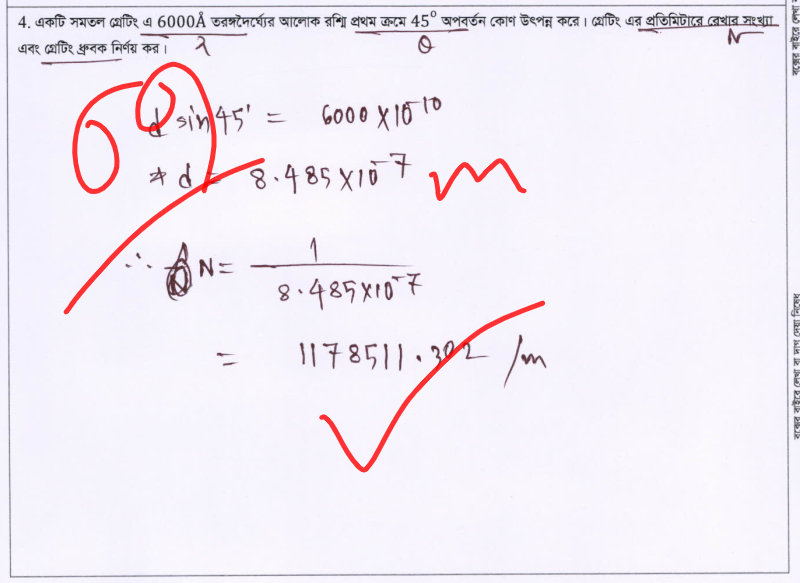 4. একটি সমতল গ্রেটিং এ 6000Å তরঙ্গদৈর্ঘ্যের আলোক রশ্মি প্রথম ক্রমে 45° অপবর্তন কোণ উৎপন্ন করে। গ্রেটিং এর প্রতিমিটারে রেখার সংখ্যা
এবং গ্রেটিং ধ্রুবক নির্ণয় কর।
λ θ N
d sin 45° = 6000×10⁻¹⁰
d = 8.485×10⁻⁷ m
∴ N = 1 / 8.485×10⁻⁷
= 1178511.302 /m